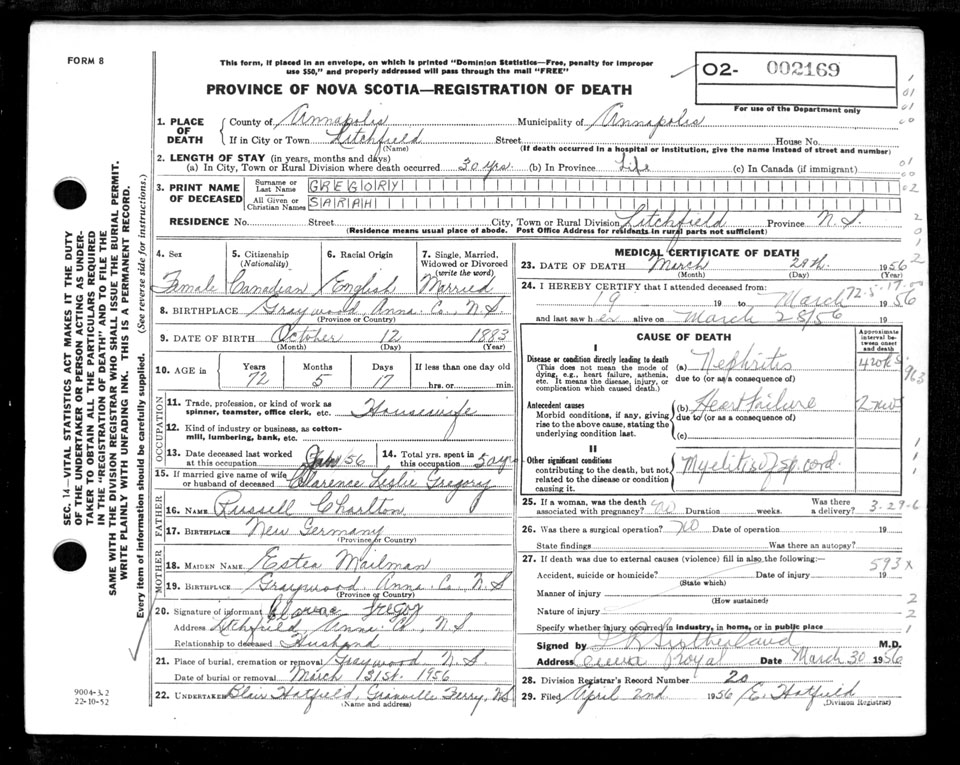 FORM 8
This form, if placed in an envelope, on which is printed "Dominion Statistics—Free, penalty for improper
use $50," and properly addressed will pass through the mail "FREE"
02- 002169
For use of the Department only
PROVINCE OF NOVA SCOTIA—REGISTRATION OF DEATH
1. PLACE OF DEATH { County of Annapolis Municipality of Annapolis
If in City or Town Litchfield Street House No.
(Name) (If death occurred in a hospital or institution, give the name instead of street and number)
2. LENGTH OF STAY (in years, months and days)
(a) In City, Town or Rural Division where death occurred 30 yrs. (b) In Province Life (c) In Canada (if immigrant)
3. PRINT NAME OF DECEASED { Surname or Last Name GREGORY
All Given or Christian Names SARAH
RESIDENCE No. Street City, Town or Rural Division Litchfield Province N.S.
(Residence means usual place of abode. Post Office Address for residents in rural parts not sufficient)
4. Sex 5. Citizenship (Nationality) 6. Racial Origin 7. Single, Married, Widowed or Divorced (write the word)
Female Canadian English Married
8. BIRTHPLACE Graywood Anna. Co., N.S.
(Province or Country)
9. DATE OF BIRTH October 12 1883
(Month) (Day) (Year)
10. AGE in Years Months Days If less than one day old
72 5 17 hrs. or min.
OCCUPATION
11. Trade, profession, or kind of work as spinner, teamster, office clerk, etc. Housewife
12. Kind of industry or business, as cotton-mill, lumbering, bank, etc.
13. Date deceased last worked at this occupation 56 14. Total yrs. spent in this occupation
15. If married give name of wife or husband of deceased Clarence Leslie Gregory
FATHER
16. NAME Russell Charlton
17. BIRTHPLACE New Germany
(Province or Country)
MOTHER
18. MAIDEN NAME Estea Mailman
19. BIRTHPLACE Graywood Anna. Co. N.S
(Province or Country)
20. Signature of informant
Address Litchfield, Anna. Co., N.S
Relationship to deceased Husband
21. Place of burial, cremation or removal Graywood N.S.
Date of burial or removal March 31st. 1956
22. UNDERTAKER Blair Hatfield, Granville Ferry, N.S
(Name and address)
MEDICAL CERTIFICATE OF DEATH
23. DATE OF DEATH March 28th. 1956
(Month) (Day) (Year)
24. I HEREBY CERTIFY that I attended deceased from:
19 19 to March 1956
72-5-17
and last saw her alive on March 28/56 19
CAUSE OF DEATH
Approximate interval between onset and death
I
Disease or condition directly leading to death
(This does not mean the mode of dying, e.g., heart failure, asthenia, etc. It means the disease, injury, or complication which caused death.)
(a) Nephritis
due to (or as a consequence of)
Antecedent causes
Morbid conditions, if any, giving rise to the above cause, stating the underlying condition last.
(b) Heart failure
due to (or as a consequence of)
(c)
II
Other significant conditions
contributing to the death, but not related to the disease or condition causing it.
Myelitis of sp. cord.
25. If a woman, was the death associated with pregnancy? no Duration weeks. Was there a delivery?
3-29-6
26. Was there a surgical operation? no Date of operation 19
State findings Was there an autopsy?
27. If death was due to external causes (violence) fill in also the following:—
593x
Accident, suicide or homicide? Date of injury 19
(State which)
Manner of injury
(How sustained)
Nature of injury
Specify whether injury occurred in industry, in home, or in public place
Signed by Sutherland M.D.
Address Royal Date March 30 1956
28. Division Registrar's Record Number 20
29. Filed April 2nd 1956 E. Hatfield
(Division Registrar)
SEC. 14—VITAL STATISTICS ACT MAKES IT THE DUTY
OF THE UNDERTAKER OR PERSON ACTING AS UNDER-
TAKER TO OBTAIN ALL THE PARTICULARS REQUIRED
IN THE "REGISTRATION OF DEATH" AND TO FILE THE
SAME WITH THE DIVISION REGISTRAR WHO SHALL ISSUE THE BURIAL PERMIT.
WRITE PLAINLY WITH UNFADING INK. THIS IS A PERMANENT RECORD.
Every item of information should be carefully supplied. (See reverse side for instructions.)
9004-3.2
22-10-52